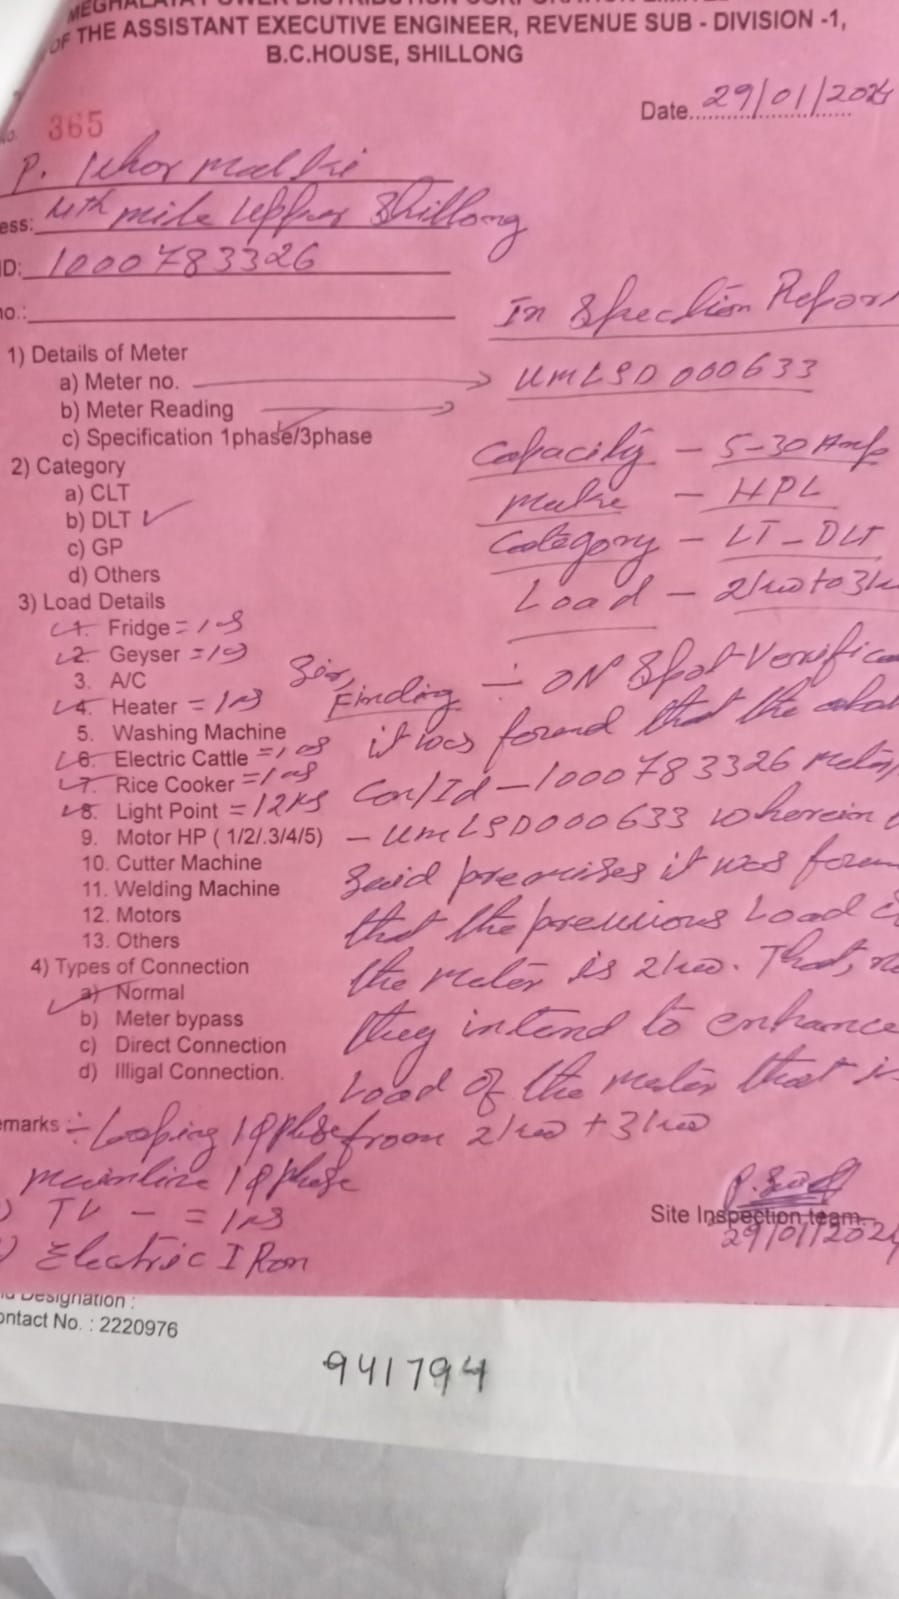 MEGHALAYA POWER DISTRIBUTION CORPORATION LIMITED
OF THE ASSISTANT EXECUTIVE ENGINEER, REVENUE SUB - DIVISION -1,
B.C.HOUSE, SHILLONG
Date. 29/01/2024
No. 365
P.
ess: 4th mile Upper Shillong
ID: 1000783326
no.:
In Spection Repor
1) Details of Meter
a) Meter no. UMLSD000633
b) Meter Reading
c) Specification 1phase/3phase
Capacity - 5-30 Amp
2) Category
a) CLT
Make - HPL
b) DLT ✓
Category - LT-DLT
c) GP
d) Others
Load - 2kw to 3kw
3) Load Details
1. Fridge = 1
2. Geyser = 1
Sir,
Finding :- ON Spot Verifica
3. A/C
4. Heater = 1
5. Washing Machine
it was found that the abo
6. Electric Cattle = 1
7. Rice Cooker = 1
Con/Id - 1000783326 meter
8. Light Point = 12
9. Motor HP ( 1/2/.3/4/5) - UMLSD000633 wherein
10. Cutter Machine
11. Welding Machine
Said premises it was foun
12. Motors
that the previous Load
13. Others
4) Types of Connection
the meter is 2kw. That,
a) Normal
b) Meter bypass
they intend to enhance
c) Direct Connection
d) Illigal Connection.
Load of the meter that is
emarks :- Looping 1φ phase from 2kw + 3kw
mainline 1φ phase
TV - = 1
Site Inspection team.
29/01/2024
Electric IRon
Designation :
ontact No. : 2220976
941794